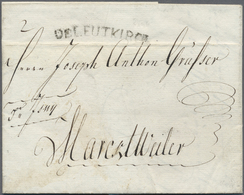 2
DE LEUTKIRCH
Herrn Joseph Anthon Grusser
Marcktweiler